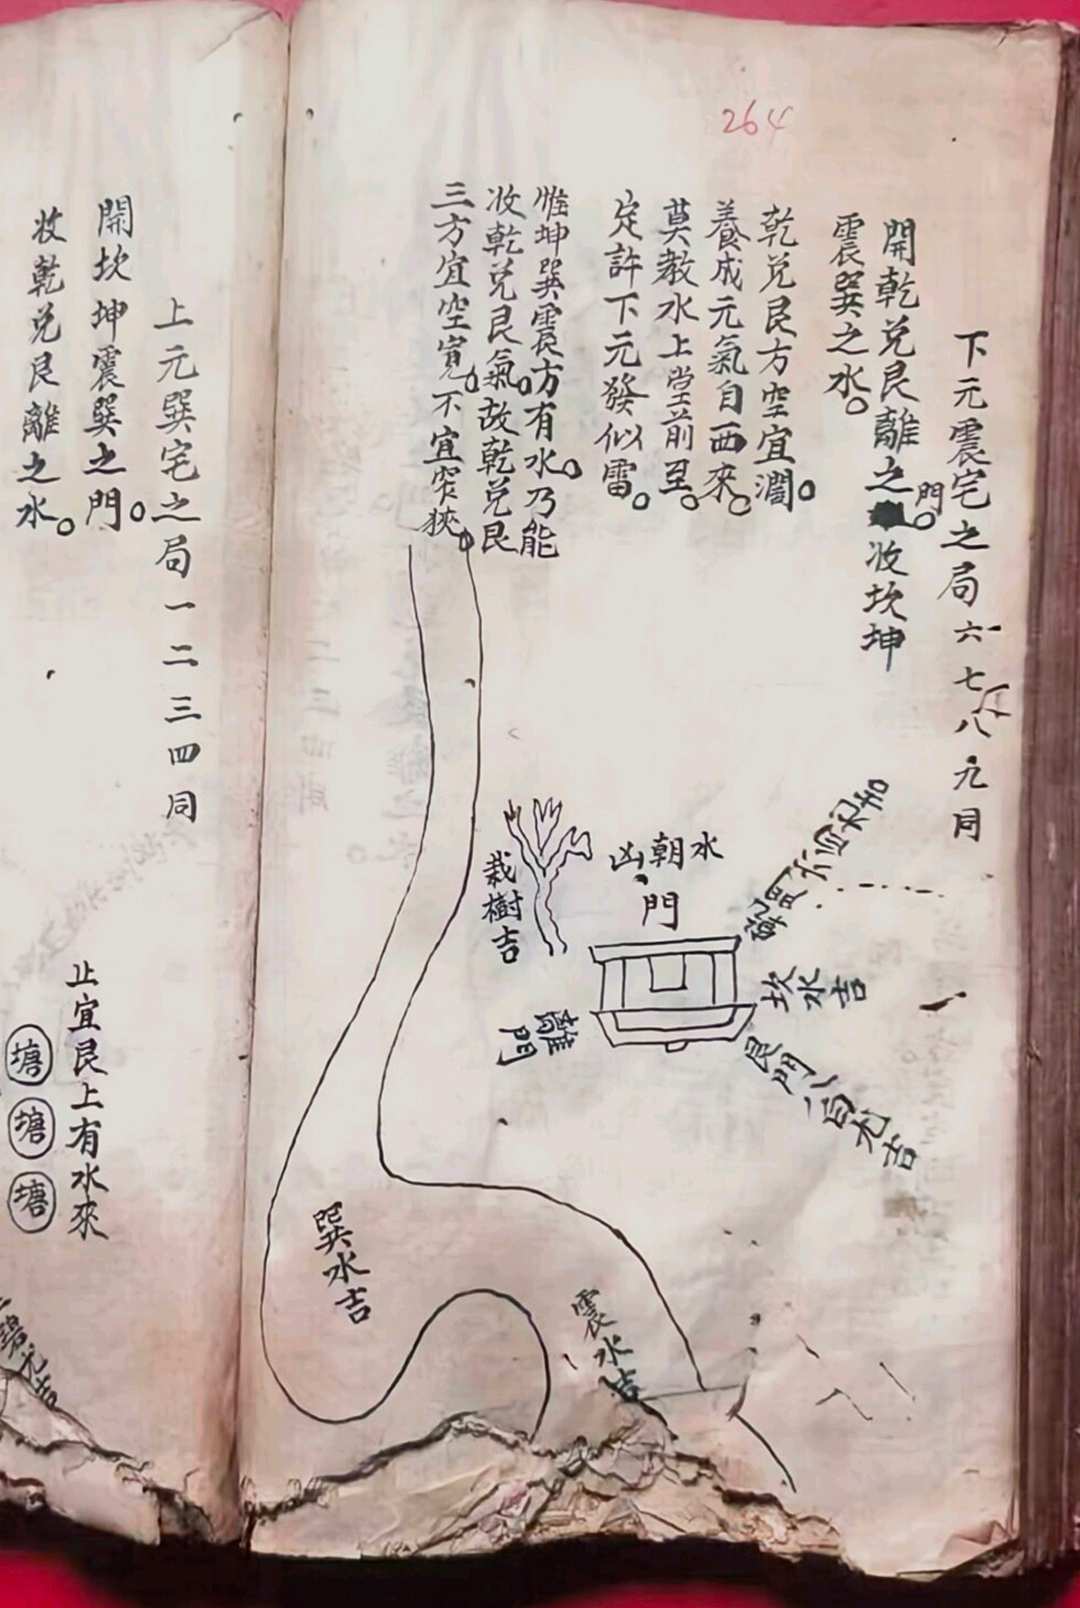 264
下元震宅之局六七八九同
開乾兌艮離之門。收坎坤
震巽之水。
乾兌艮方空宜濶。
養成元氣自西來。
莫教水上堂前至。
定許下元發似雷。
惟坤巽震方有水。乃能
收乾兌艮氣。故乾兌艮
三方宜空寬。不宜窄狹。
水朝凶
門
栽樹吉
坎水吉
離門
艮門八白尤吉
巽水吉
震水吉
上元巽宅之局一二三四同
開坎坤震巽之門。
收乾兌艮離之水。
止宜艮上有水來
塘
塘
塘
碧尤吉